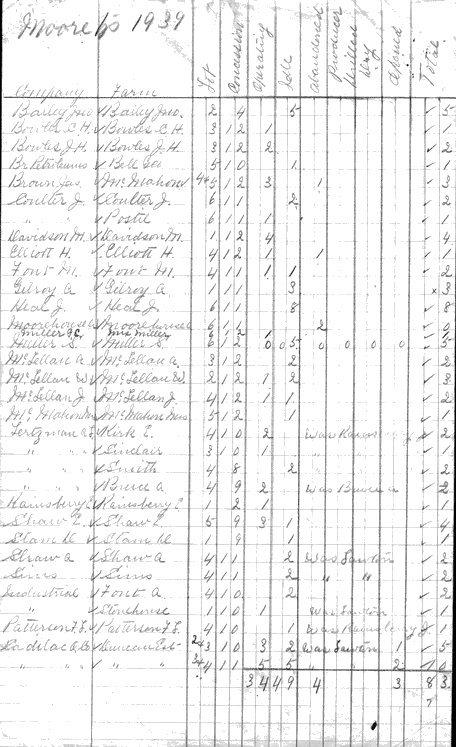 Moore Tp 1939
Company Farm Lot Concession Operating Idle Abandoned Producer Drilled Dry Total
Bailey Jno ✓ Bailey Jno. 2 4 5 ✓ 5
Bowles C H. ✓ Bowles C H. 3 12 1 ✓ 1
Bowles J H ✓ Bowles J H 3 12 2 ✓ 2
Br Petroleums ✓ Bell Geo 5 10 1 ✓ 1
Brown Jas. ✓ McMahon 4+5 12 3 1 ✓ 3
Coulter J. ✓ Coulter J. 6 11 2 ✓ 2
" " ✓ Postil 6 11 1 ✓ 1
Davidson M. ✓ Davidson M. 1 12 4 ✓ 4
Elliott H. ✓ Elliott H. 4 12 1 1 ✓ 1
Font M. ✓ Font M. 4 11 1 1 ✓ 2
Gilroy A ✓ Gilroy A 1 11 3 x 3
Heal J. ✓ Heal J. 6 11 8 ✓ 8
Moorehouse ✓ Moorehouse 6 11 2 ✓ 0
Miller ✓ Mrs Miller 6 12 1 ✓ 1
Miller S. ✓ Miller S. 6 12 0 0 5 0 0 0 0 ✓ 5
McLellan A ✓ McLellan A. 3 12 2 ✓ 2
McLellan W ✓ McLellan W. 2 12 1 2 ✓ 3
McLellan J ✓ McLellan J. 4 12 1 1 ✓ 2
McMahon Mrs ✓ McMahon Mrs 5 12 1 ✓ 1
✓ Kirk E. 4 10 2 was ✓ 2
" " " ✓ Sinclair 3 10 1 ✓ 1
" " " ✓ Smith 4 8 2 ✓ 2
" " " ✓ Bruce A 4 9 2 was Bruce A ✓ 2
Rainsberry E ✓ Rainsberry E 1 2 1 ✓ 1
Shaw E ✓ Shaw E. 5 9 3 1 ✓ 4
✓ 1 9 1 ✓ 1
Shaw A ✓ Shaw A 4 11 2 was Lawton ✓ 2
Sims ✓ Sims 4 11 2 " " ✓ 2
Industrial ✓ Font A. 4 10 2 ✓ 2
" ✓ Stonehouse 1 10 1 was Lawton ✓ 1
Patterson F. L. ✓ Patterson F. L. 4 10 1 was Rainsberry J. ✓ 1
✓ Duncan Est 2+3 10 3 2 was Lawton 1 ✓ 5
" " " ✓ " " 3+4 11 5 5 " " 2 ✓ 10
34 49 4 3 83